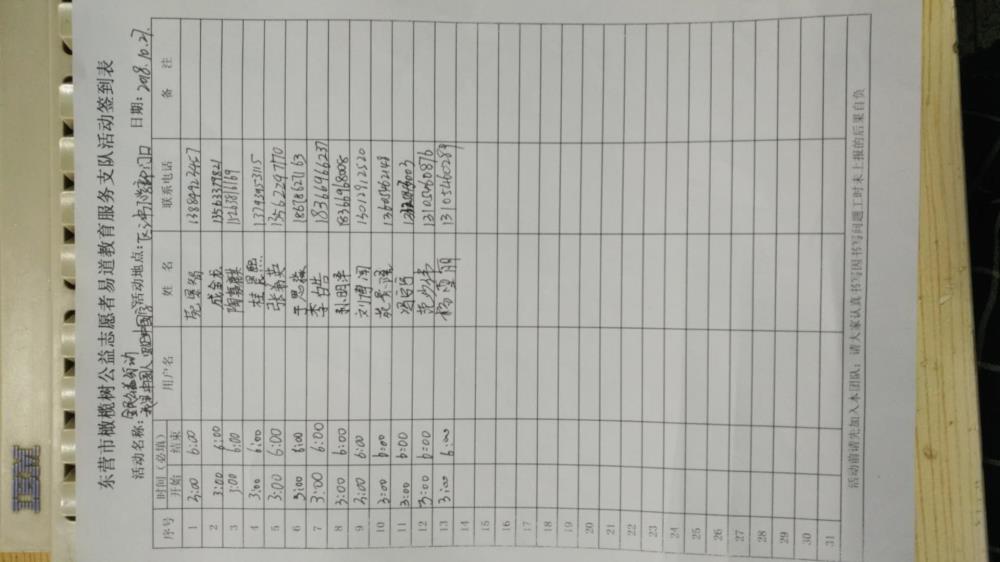 东营市橄榄树公益志愿者易道教育服务支队活动签到表
全民公益行动
活动名称：我是中国人 活动地点： 日期：2018.10.27
序号 时间（必填） 用户名 姓名 联系电话 备注
开始 结束
1 3:00 6:00 13884923457
2 3:00 6:00 成金龙 13563379821
3 3:00 6:00 陶嘉麒 15263816169
4 3:00 6:00 13793953115
5 3:00 6:00 张新英 13562297170
6 3:00 6:00 于恩海 18678627163
7 3:00 6:00 李占浩 18366966237
8 3:00 6:00 孙明泽 18366968008
9 3:00 6:00 刘博闻 15012912520
10 3:00 6:00 13605462148
11 3:00 6:00
12 3:00 6:00 13105460876
13 3:00 6:00 杨雯丽 13105460289
14
15
16
17
18
19
20
21
22
23
24
25
26
27
28
29
30
31
活动前请先加入本团队；请大家认真书写因书写问题工时未上报的后果自负
IBM